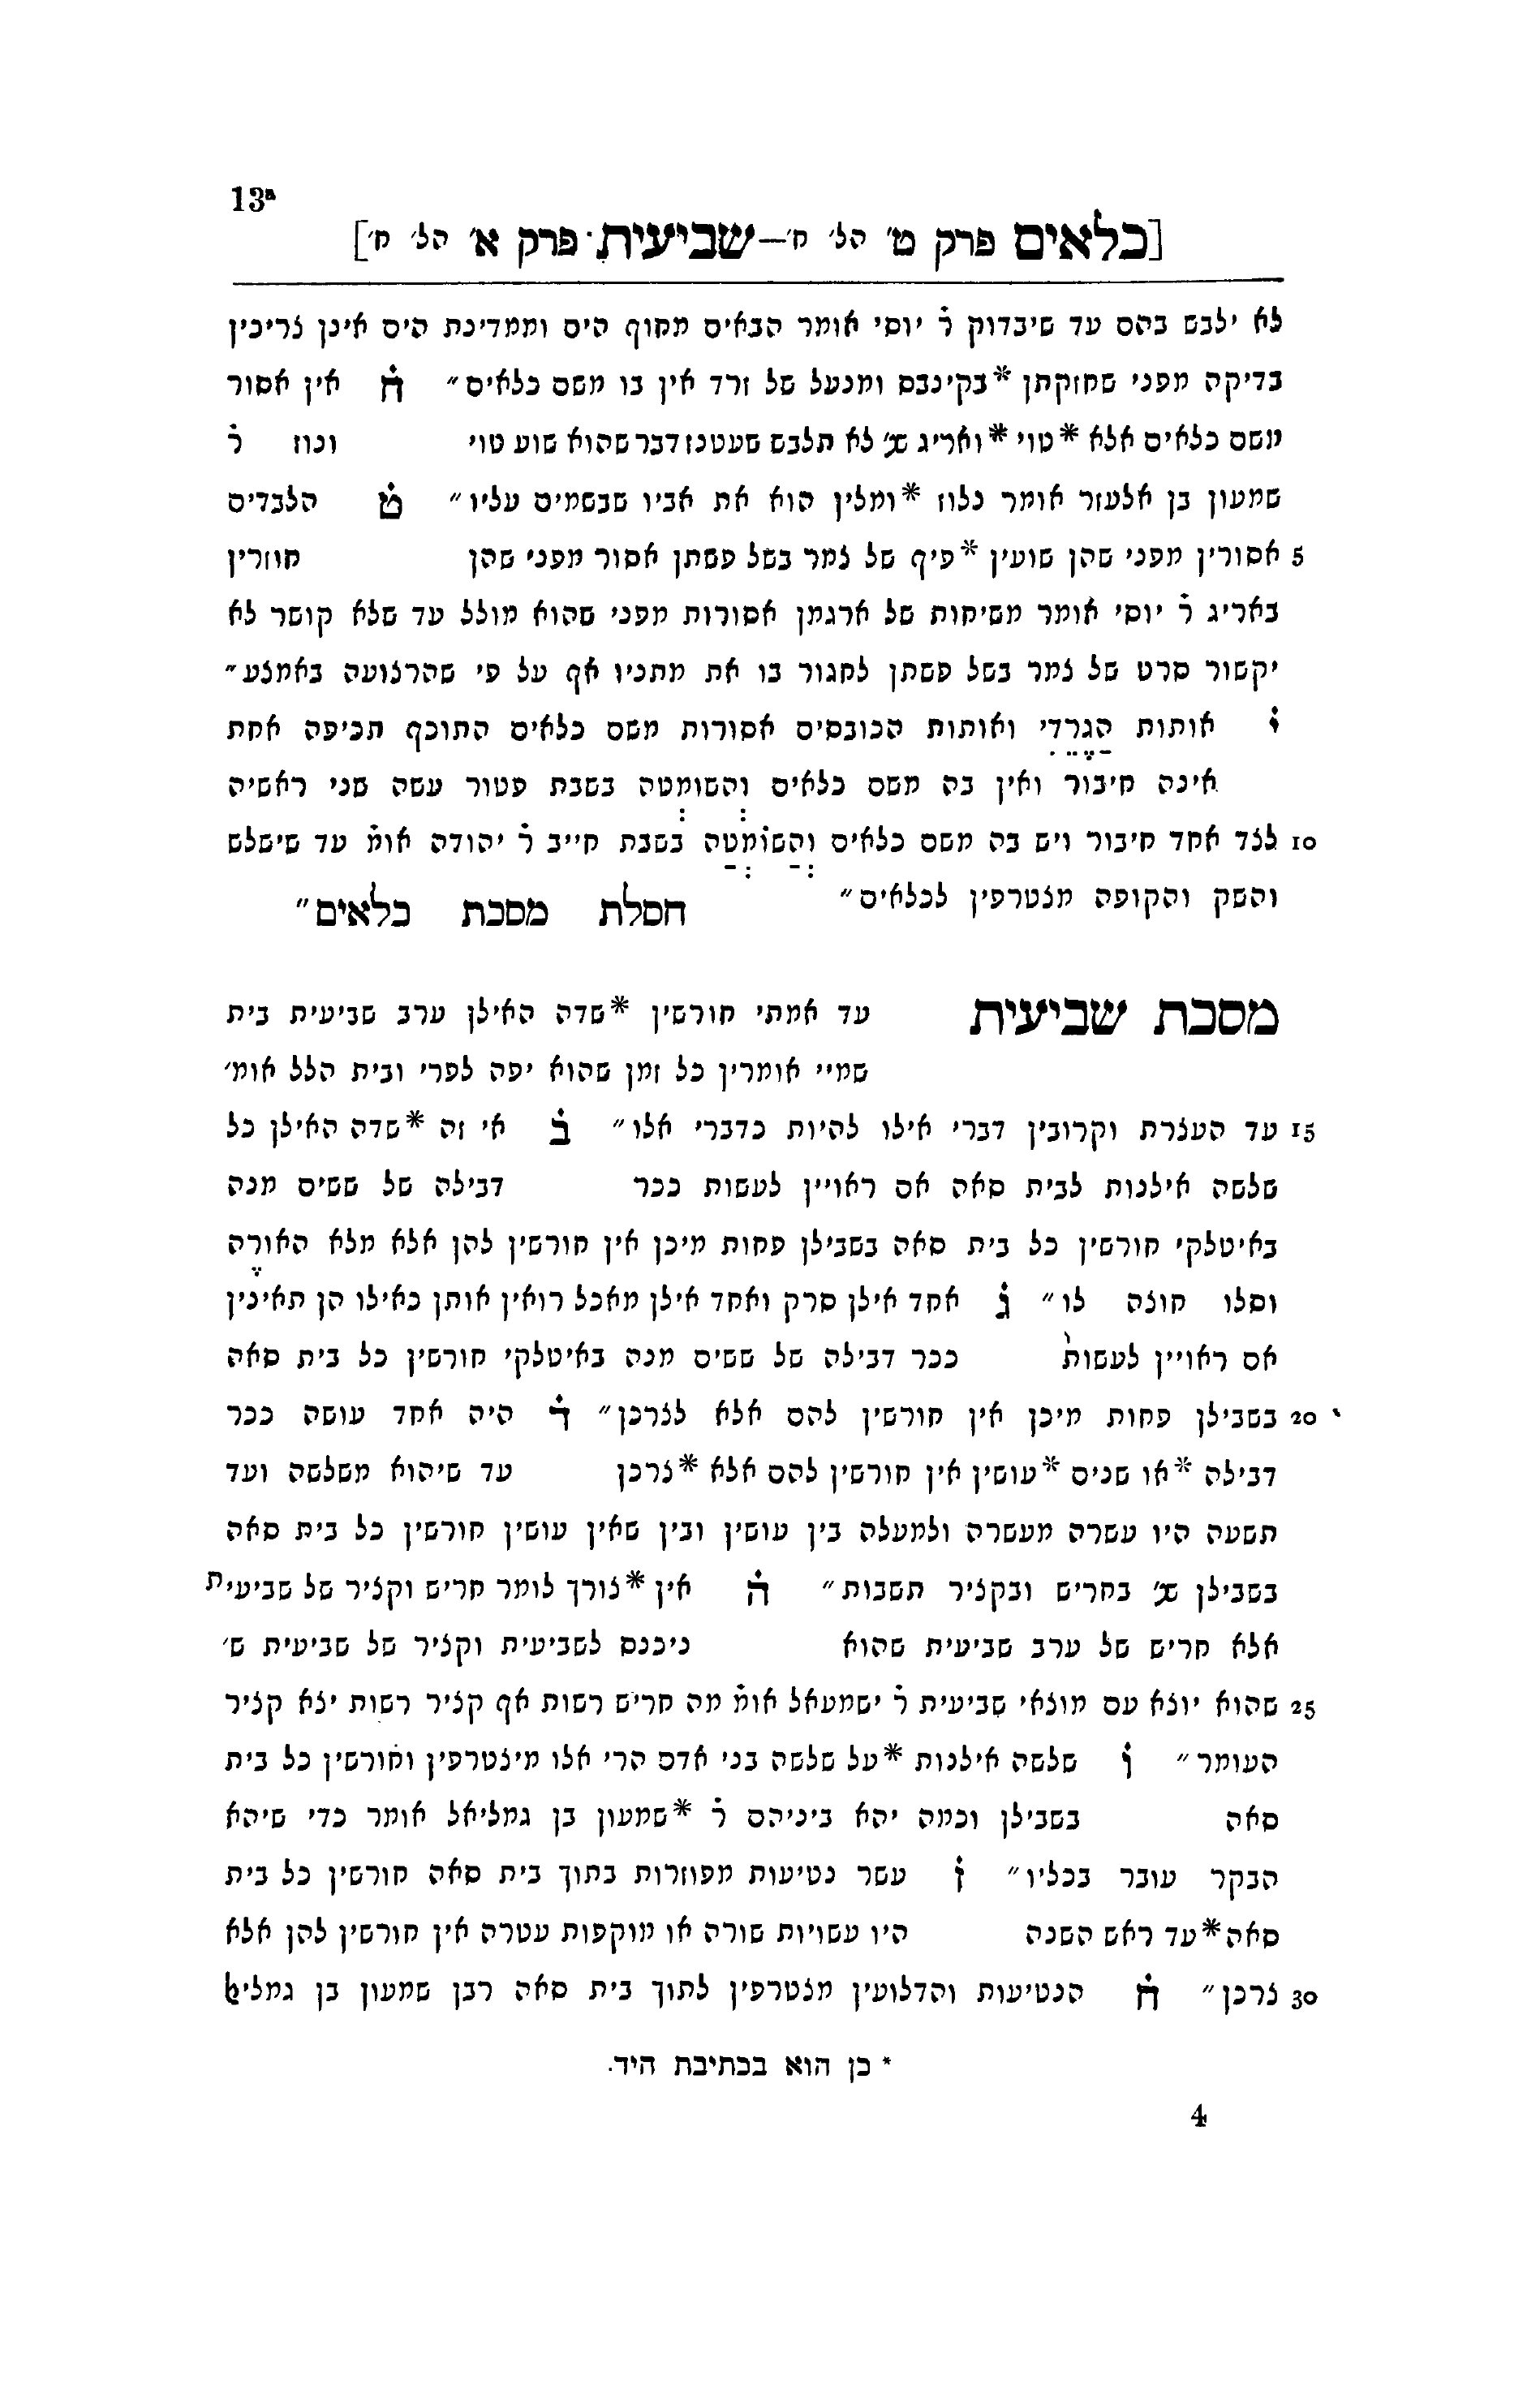 13ª
[כלאים פרק ט׳ הל׳ ח׳—שביעית· פרק א׳ הל׳ ח׳]
לא ילבש בהם עד שיבדוק ר̇ יוסי אומר הבאים מחוף הים וממדינת הים אינן צריכין
בדיקה מפני שחזקתן *בקינבס ומנעל של זרד אין בו משם כלאים״ ח̇ אין אסור
משם כלאים אלא *טוי *ואריג שנ׳ לא תלבש שעטנז דבר שהוא שוע טוי ונוז ר̇
שמעון בן אלעזר אומר נלוז *ומלין הוא את אביו שבשמים עליו״ ט̇ הלבדים
5 אסורין מפני שהן שועין *פיף של צמר בשל פשתן אסור מפני שהן חוזרין
באריג ר̇ יוסי אומר משיחות של ארגמן אסורות מפני שהוא מולל עד שלא קושר לא
יקשור סרט של צמר בשל פשתן לחגור בו את מתניו אף על פי שהרצועה באמצע״
י̇ אותות הַגַּרְדִּי ואותות הכובסים אסורות משם כלאים התוכף תכיפה אחת
אינה חיבור ואין בה משם כלאים והשומטה בשבת פטור עשה שני ראשיה
10 לצד אחד חיבור ויש בה משם כלאים והשומטה בשבת חייב ר̇ יהודה אומ̇ עד שישלש
והשק והקופה מצטרפין לכלאים״ חסלת מסכת כלאים״
מסכת שביעית עד אמתי חורשין *שדה האילן ערב שביעית בית
שמיי אומרין כל זמן שהוא יפה לפרי ובית הלל אומ׳
15 עד העצרת וקרובין דברי אילו להיות כדברי אלו״ ב̇ אי זה *שדה האילן כל
שלשה אילנות לבית סאה אם ראויין לעשות ככר דבילה של ששים מנה
באיטלקי חורשין כל בית סאה בשבילן פחות מיכן אין חורשין להן אלא מלא האורֶה
וסלו חוצה לו״ ג̇ אחד אילן סרק ואחד אילן מאכל רואין אותן כאילו הן תאינין
אם ראויין לעשות ככר דבילה של ששים מנה באיטלקי חורשין כל בית סאה
20 בשבילן פחות מיכן אין חורשין להם אלא לצרכן״ ד̇ היה אחד עושה ככר
דבילה *או שנים *עושין אין חורשין להם אלא *צרכן עד שיהוא משלשה ועד
תשעה היו עשרה מעשרה ולמעלה בין עושין ובין שאין עושין חורשין כל בית סאה
בשבילן שנ׳ בחריש ובקציר תשבות״ ה̇ אין *צורך לומר חריש וקציר של שביעית
אלא חריש של ערב שביעית שהוא ניכנס לשביעית וקציר של שביעית ש׳
25 שהוא יוצא עם מוצאי שביעית ר̇ ישמעאל אומ̇ מה חריש רשות אף קציר רשות יצא קציר
העומר״ ו̇ שלשה אילנות *על שלשה בני אדם הרי אלו מיצטרפין וחורשין כל בית
סאה בשבילן וכמה יהא ביניהם ר̇ *שמעון בן גמליאל אומר כדי שיהא
הבקר עובר בכליו״ ז̇ עשר נטיעות מפוזרות בתוך בית סאה חורשין כל בית
סאה *עד ראש השנה היו עשויות שורה או מוקפות עטרה אין חורשין להן אלא
30 צרכן״ ח̇ הנטיעות והדלועין מצטרפין לתוך בית סאה רבן שמעון בן גמליאל
* כן הוא בכתיבת היד.
4